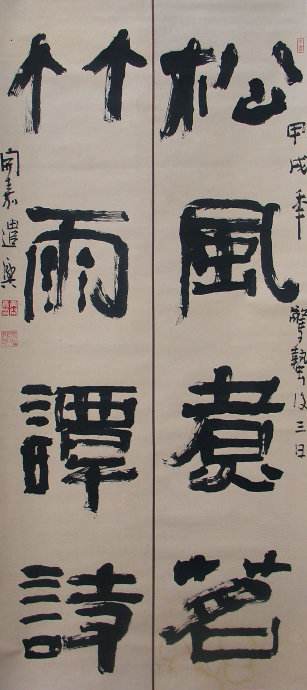 松風煮茗
甲戌年驚蟄後三日
竹雨譚詩
開嘉遣興